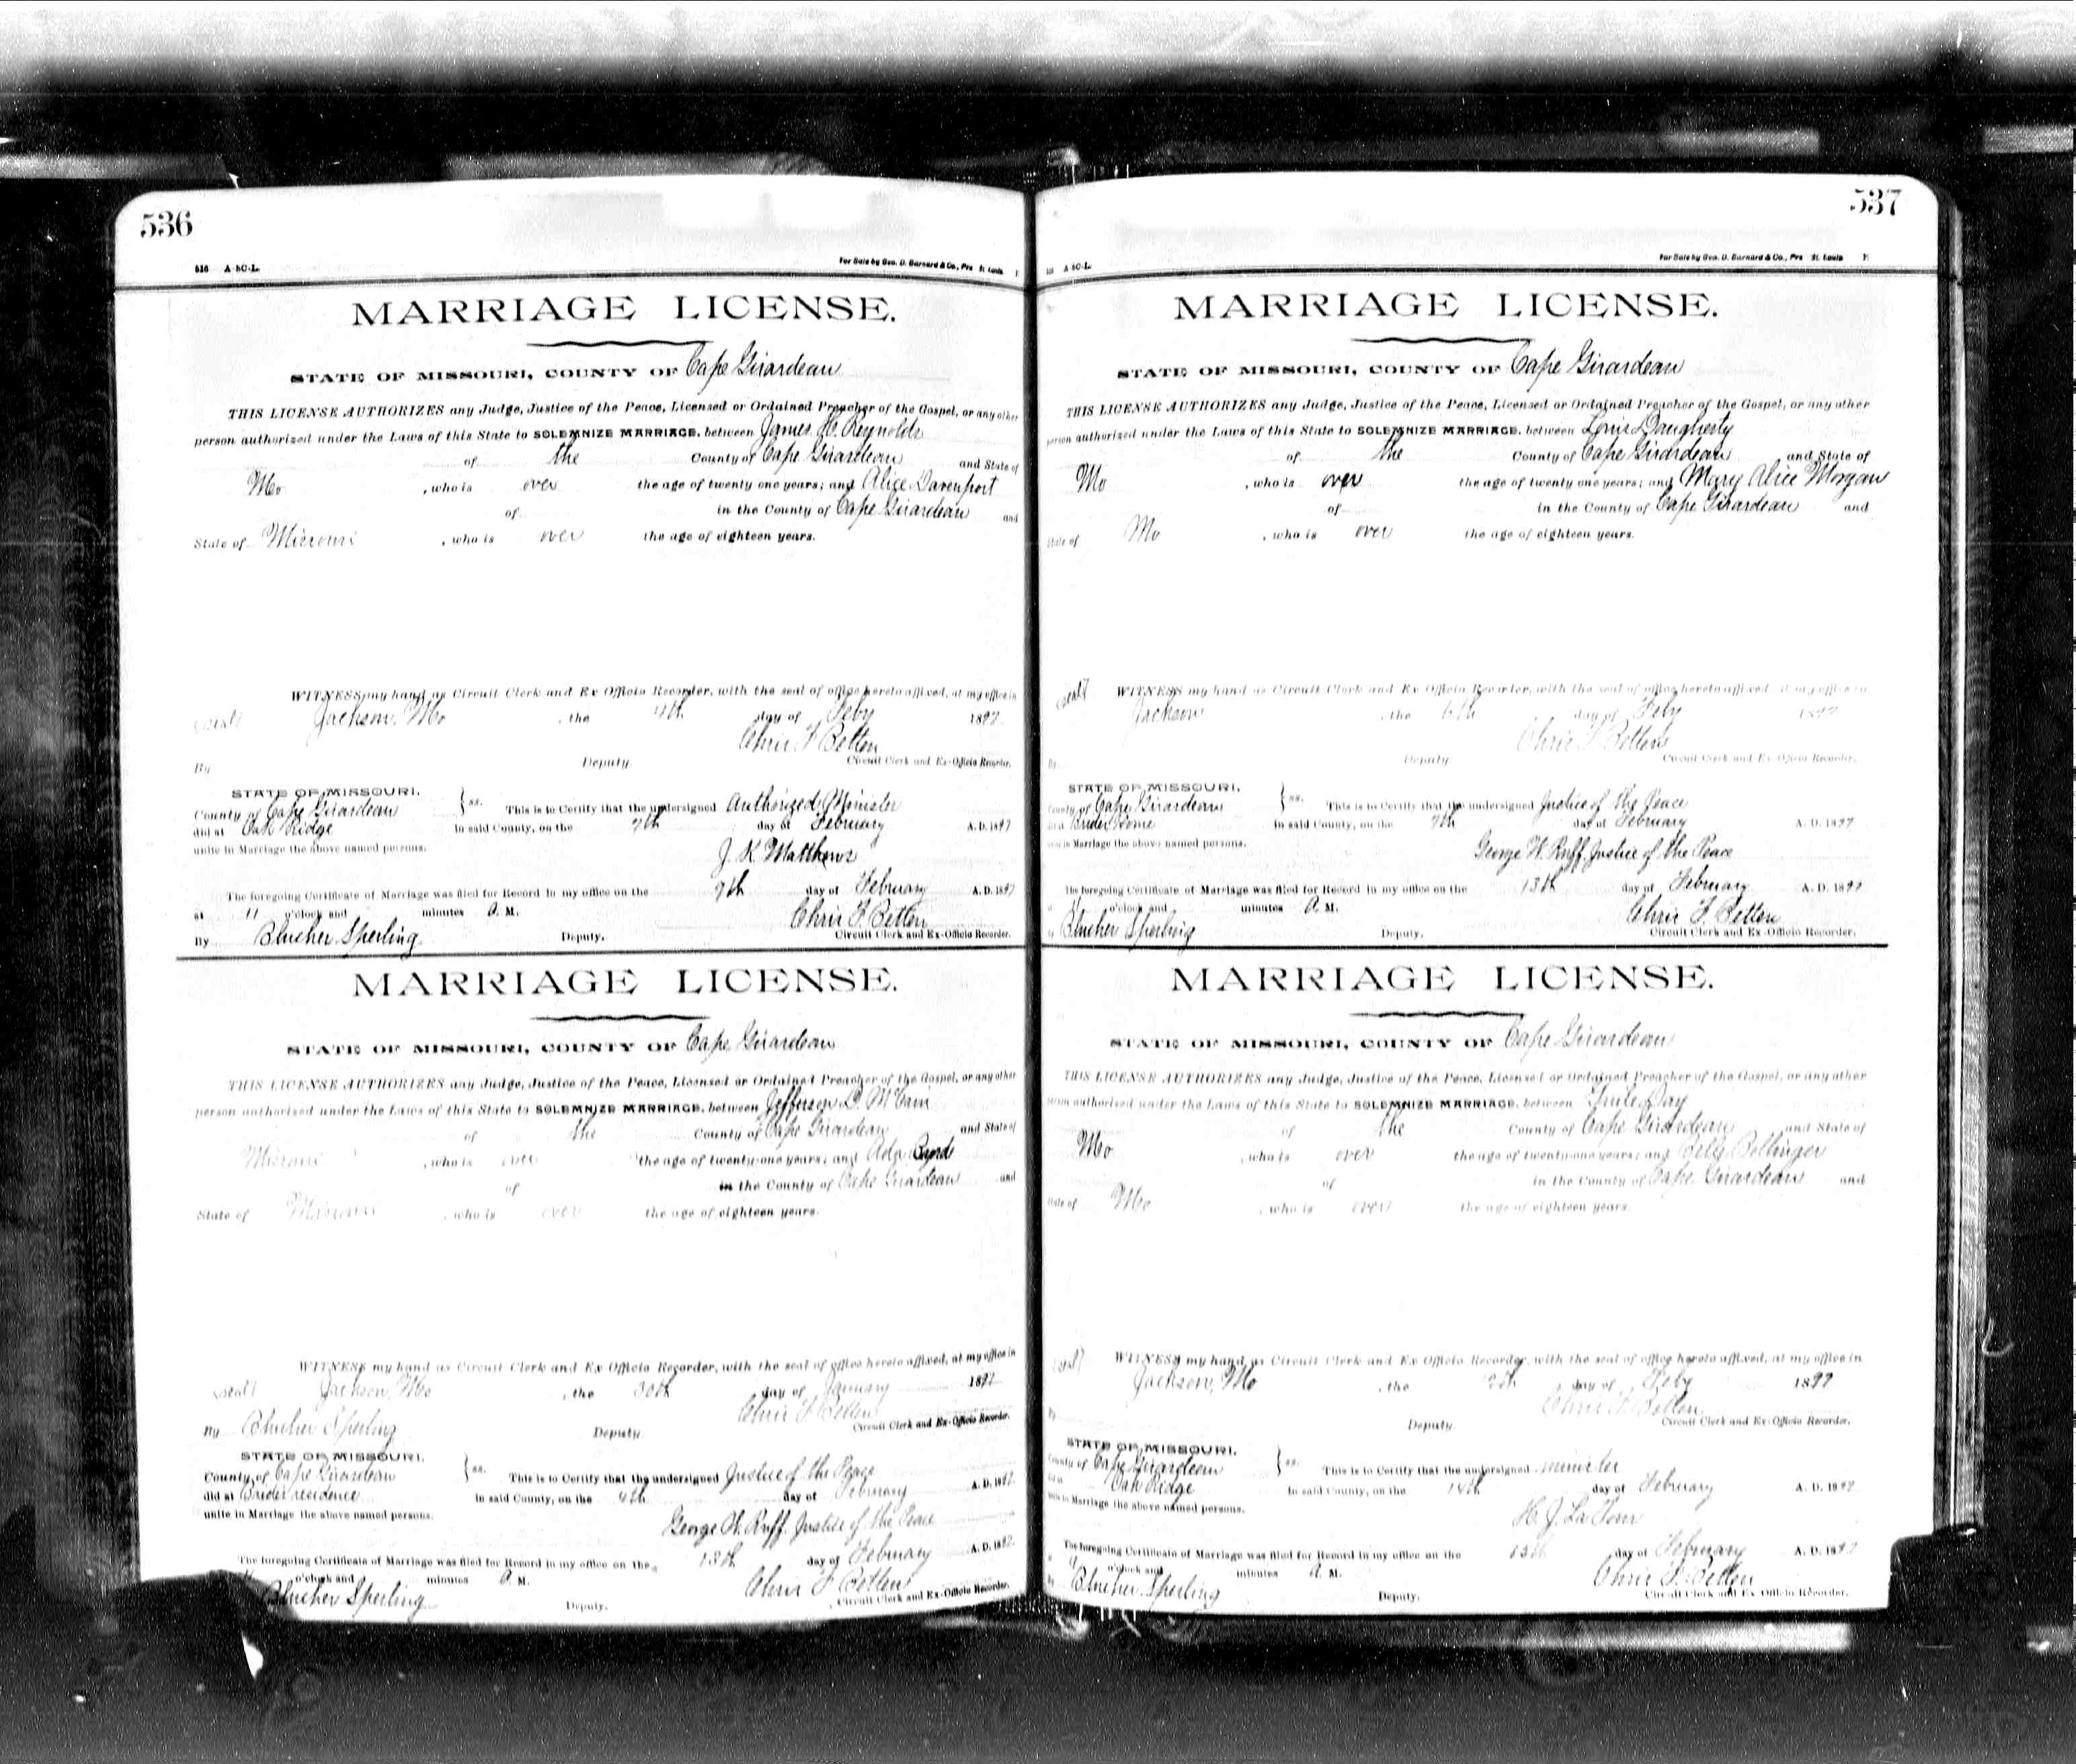 536
516 A-5C-L
For Sale by Geo. D. Barnard & Co., Prs St. Louis
MARRIAGE LICENSE.
STATE OF MISSOURI, COUNTY OF Cape Girardeau
THIS LICENSE AUTHORIZES any Judge, Justice of the Peace, Licensed or Ordained Preacher of the Gospel, or any other
person authorized under the Laws of this State to SOLEMNIZE MARRIAGE, between James H. Reynolds
of the County of Cape Girardeau and State of
Mo , who is over the age of twenty one years; and Alice Davenport
of in the County of Cape Girardeau and
State of Missouri , who is over the age of eighteen years.
WITNESS my hand as Circuit Clerk and Ex Officio Recorder, with the seal of office hereto affixed, at my office in
(seal) Jackson, Mo , the 4th day of Feby 1897
Chris F Betten
By Deputy. Circuit Clerk and Ex-Officio Recorder.
STATE OF MISSOURI,
County of Cape Girardeau } ss. This is to Certify that the undersigned Authorized Minister
did at Oak Ridge in said County, on the 7th day of February A.D. 1897
unite in Marriage the above named persons.
J. K. Matthews
The foregoing Certificate of Marriage was filed for Record in my office on the 9th day of February A. D. 1897
at 11 o'clock and minutes A. M.
Chris F. Betten
By Blucher Sperling Deputy. Circuit Clerk and Ex-Officio Recorder.
MARRIAGE LICENSE.
STATE OF MISSOURI, COUNTY OF Cape Girardeau
THIS LICENSE AUTHORIZES any Judge, Justice of the Peace, Licensed or Ordained Preacher of the Gospel, or any other
person authorized under the Laws of this State to SOLEMNIZE MARRIAGE, between Jefferson D. McCain
of the County of Cape Girardeau and State of
Missouri , who is over the age of twenty-one years; and Ada Byrd
of in the County of Cape Girardeau and
State of Missouri , who is over the age of eighteen years.
WITNESS my hand as Circuit Clerk and Ex Officio Recorder, with the seal of office hereto affixed, at my office in
(seal) Jackson, Mo , the 30th day of January 1897
Chris F Betten
By Blucher Sperling Deputy. Circuit Clerk and Ex-Officio Recorder.
STATE OF MISSOURI,
County of Cape Girardeau } ss. This is to Certify that the undersigned Justice of the Peace
did at Brides residence in said County, on the 4th day of February A. D. 1897
unite in Marriage the above named persons.
George W. Ruff. Justice of the Peace
The foregoing Certificate of Marriage was filed for Record in my office on the 13th day of February A. D. 1897
o'clock and minutes A. M.
Chris F Betten
Blucher Sperling Deputy. Circuit Clerk and Ex-Officio Recorder.
537
A 5C-L
For Sale by Geo. D. Barnard & Co., Prs St. Louis
MARRIAGE LICENSE.
STATE OF MISSOURI, COUNTY OF Cape Girardeau
THIS LICENSE AUTHORIZES any Judge, Justice of the Peace, Licensed or Ordained Preacher of the Gospel, or any other
person authorized under the Laws of this State to SOLEMNIZE MARRIAGE, between Louis Daugherty
of the County of Cape Girardeau and State of
Mo , who is over the age of twenty one years; and Mary Alice Morgan
of in the County of Cape Girardeau and
State of Mo , who is over the age of eighteen years.
(seal) WITNESS my hand as Circuit Clerk and Ex Officio Recorder, with the seal of office hereto affixed, at my office in
Jackson , the 6th day of Feby 1897
Chris F Betten
By Deputy. Circuit Clerk and Ex-Officio Recorder.
STATE OF MISSOURI,
County of Cape Girardeau } ss. This is to Certify that the undersigned Justice of the Peace
Brides Home in said County, on the 7th day of February A. D. 1897
unite in Marriage the above named persons.
George W. Ruff. Justice of the Peace
The foregoing Certificate of Marriage was filed for Record in my office on the 13th day of February A. D. 1897
o'clock and minutes A. M.
Chris F. Betten
Blucher Sperling Deputy. Circuit Clerk and Ex-Officio Recorder.
MARRIAGE LICENSE.
STATE OF MISSOURI, COUNTY OF Cape Girardeau
THIS LICENSE AUTHORIZES any Judge, Justice of the Peace, Licensed or Ordained Preacher of the Gospel, or any other
person authorized under the Laws of this State to SOLEMNIZE MARRIAGE, between Day
of the County of Cape Girardeau and State of
Mo , who is over the age of twenty-one years; and Bollinger
of in the County of Cape Girardeau and
State of Mo , who is over the age of eighteen years
(seal) WITNESS my hand as Circuit Clerk and Ex Officio Recorder, with the seal of office hereto affixed, at my office in
Jackson, Mo , the day of Feby 1897
Chris F. Betten
By Deputy. Circuit Clerk and Ex-Officio Recorder.
STATE OF MISSOURI,
County of Cape Girardeau } ss. This is to Certify that the undersigned minister
Oak Ridge in said County, on the 14th day of February A. D. 1897
unite in Marriage the above named persons.
H. J. La Tour
The foregoing Certificate of Marriage was filed for Record in my office on the 15th day of February A. D. 1897
o'clock and minutes A. M.
Chris F. Betten
Blucher Sperling Deputy. Circuit Clerk and Ex Officio Recorder.